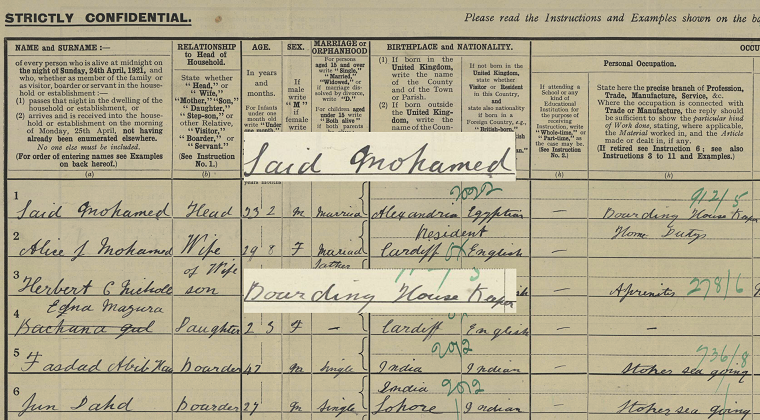 STRICTLY CONFIDENTIAL.
Please read the Instructions and Examples shown on the ba
NAME and SURNAME :—
of every person who is alive at midnight on
the night of Sunday, 24th April, 1921, and
who, whether as member of the family or
as visitor, boarder or servant in the house-
hold or establishment :—
(1) passes that night in the dwelling of the
household or establishment, or
(2) arrives and is received into the house-
hold or establishment on the morning
of Monday, 25th April, not having
already been enumerated elsewhere.
No one else must be included.
(For order of entering names see Examples
on back hereof.)
(a)
RELATIONSHIP
to Head of
Household.
State whether
"Head," or
"Wife,"
"Mother," "Son,"
"Daughter,"
"Step-son," or
other Relative,
"Visitor,"
"Boarder," or
"Servant."
(See Instruction
No. 1.)
(b)
AGE.
In years
and
months.
For Infants
under one
month old
write "Under
one month."
years months
SEX.
If
male
write
"M"
if female
write
MARRIAGE or
ORPHANHOOD
For persons
aged 15 and over
write "Single,"
"Married,"
"Widowed," or
if marriage dis-
solved by divorce,
write "D."
For children
aged under 15
write:—
"Both alive" if
both parents
BIRTHPLACE and NATIONALITY.
(1) If born in
the United
Kingdom,
write the name
of the County
and of the Town
or Parish.
(2) If born
outside the
United King-
dom, write the
name of the Coun-
If not born in the
United Kingdom,
state whether
Visitor or Resident
in this Country,
and
state also nationality
if born in a
Foreign Country, e.g.,
"British-born,"
OCCU
Personal Occupation.
If attending a
School or any
kind of
Educational
Institution for
the purpose of
receiving
Instruction, write
"Whole-time," or
"Part-time," as
the case may be.
(See Instruction
No. 2.)
(h)
State here the precise branch of Profession,
Trade, Manufacture, Service, &c.
Where the occupation is connected with
Trade or Manufacture, the reply should
be sufficient to show the particular kind
of Work done, stating, where applicable,
the Material worked in, and the Article
made or dealt in, if any.
(If retired see Instruction 6; see also
Instructions 3 to 11 and Examples.)
(k)
Said Mohamed
1 Said Mohamed Head 33 2 M Married Alexandria Egyptian — Boarding House Keper
Resident
2 Alice J Mohamed Wife 29 8 F Married Cardiff English — Home Dutys
3 Herbert C Nichols son of Wife — Aprenitis 278/6
Father
Boarding House Keper
Edna Mazura
4 Bachana gul Daughter 2 3 F — Cardiff English — —
5 Fasdad Abib Boarder 47 M Single India Indian — Stoker sea going
6 Jun Dahd Boarder 27 M Single India Lohore Indian — Stoker sea going